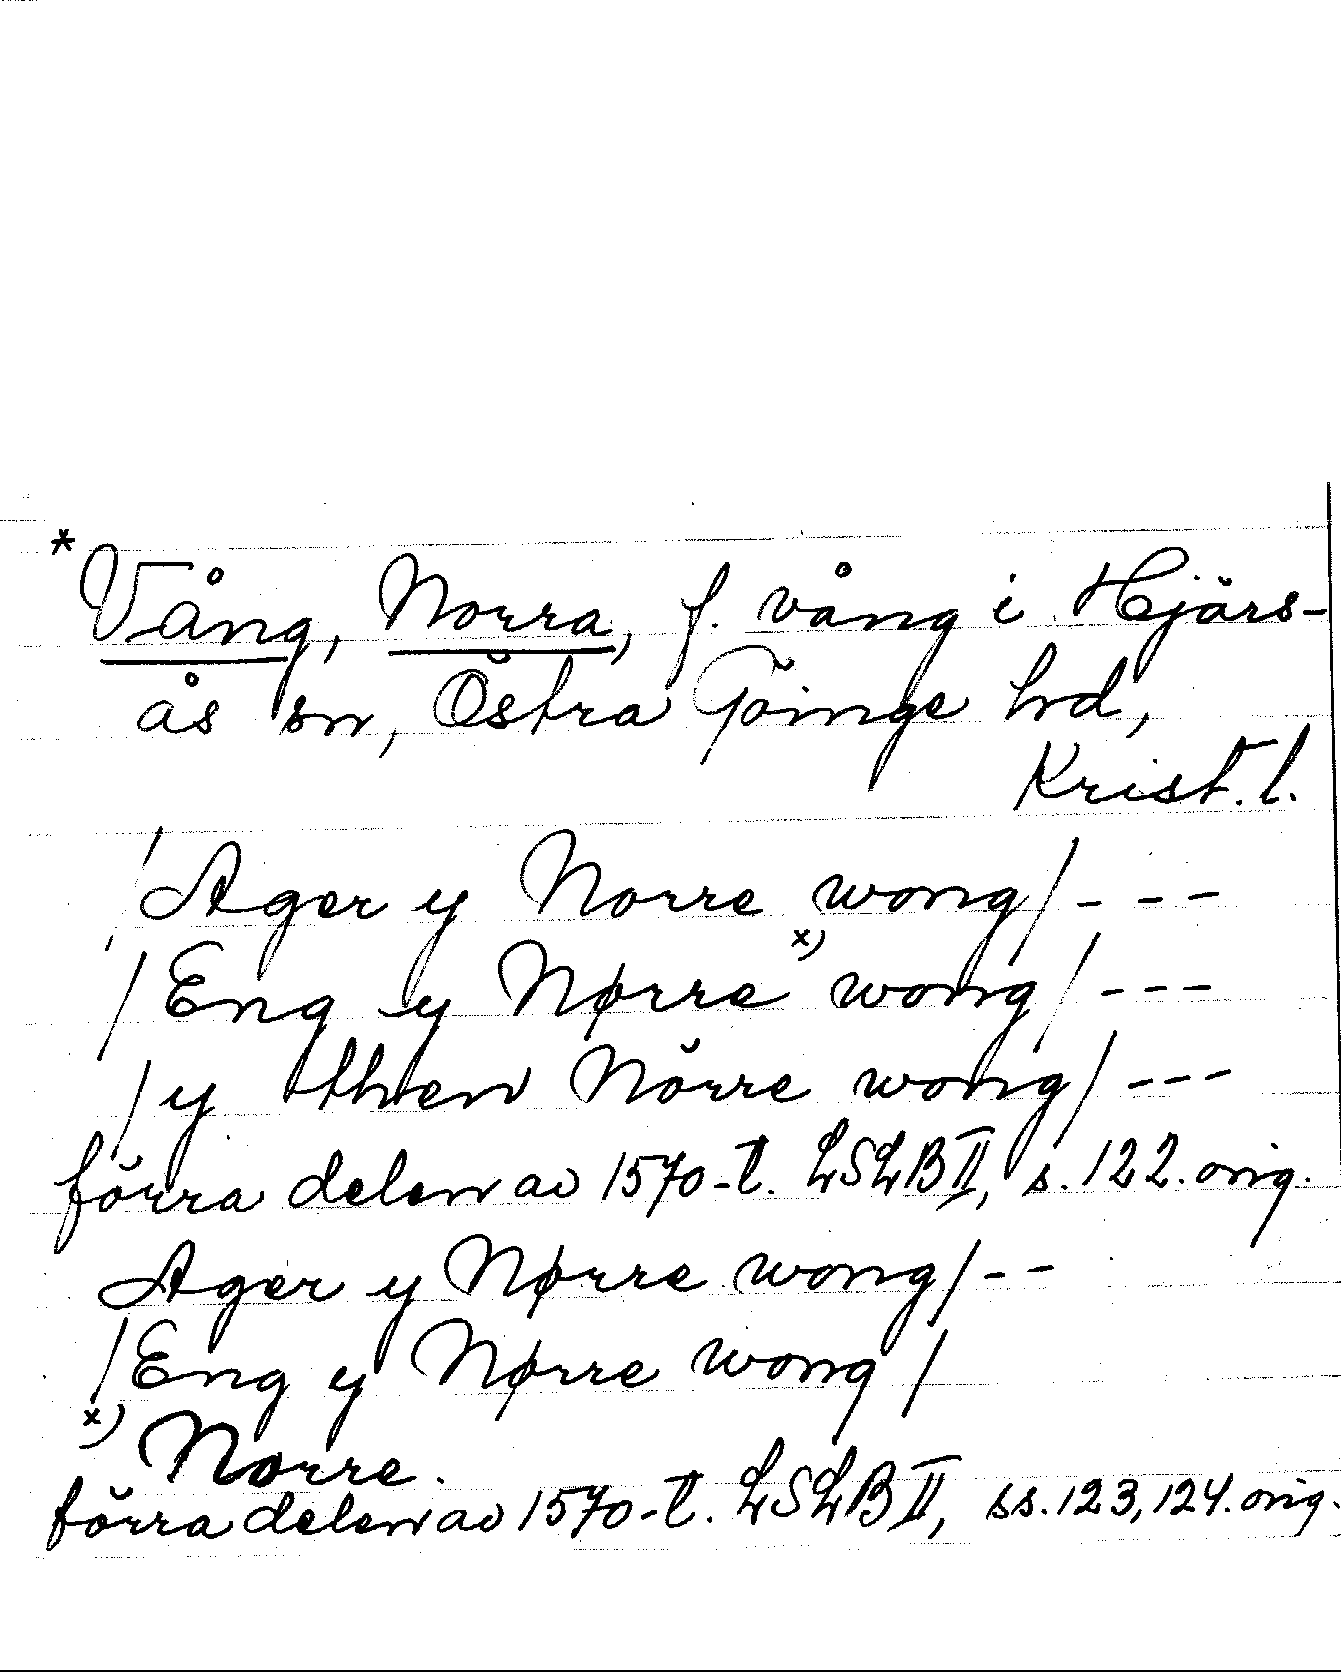 *Vång, Norra, f. vång i Hjärs-
ås sn, Östra Göinge hd,
Krist. l.
/Ager y Norre wong/ - - -
/Eng y Nørre x) wong/ - - -
/y then Nŏrre wong/ - - -
förra delen av 1570-t. LSLB II, s. 122. orig.
Ager y Nørre wong/ - -
/Eng y Nørre wong/
x) Norre.
förra delen av 1570-t. LSLB II, ss. 123, 124. orig.